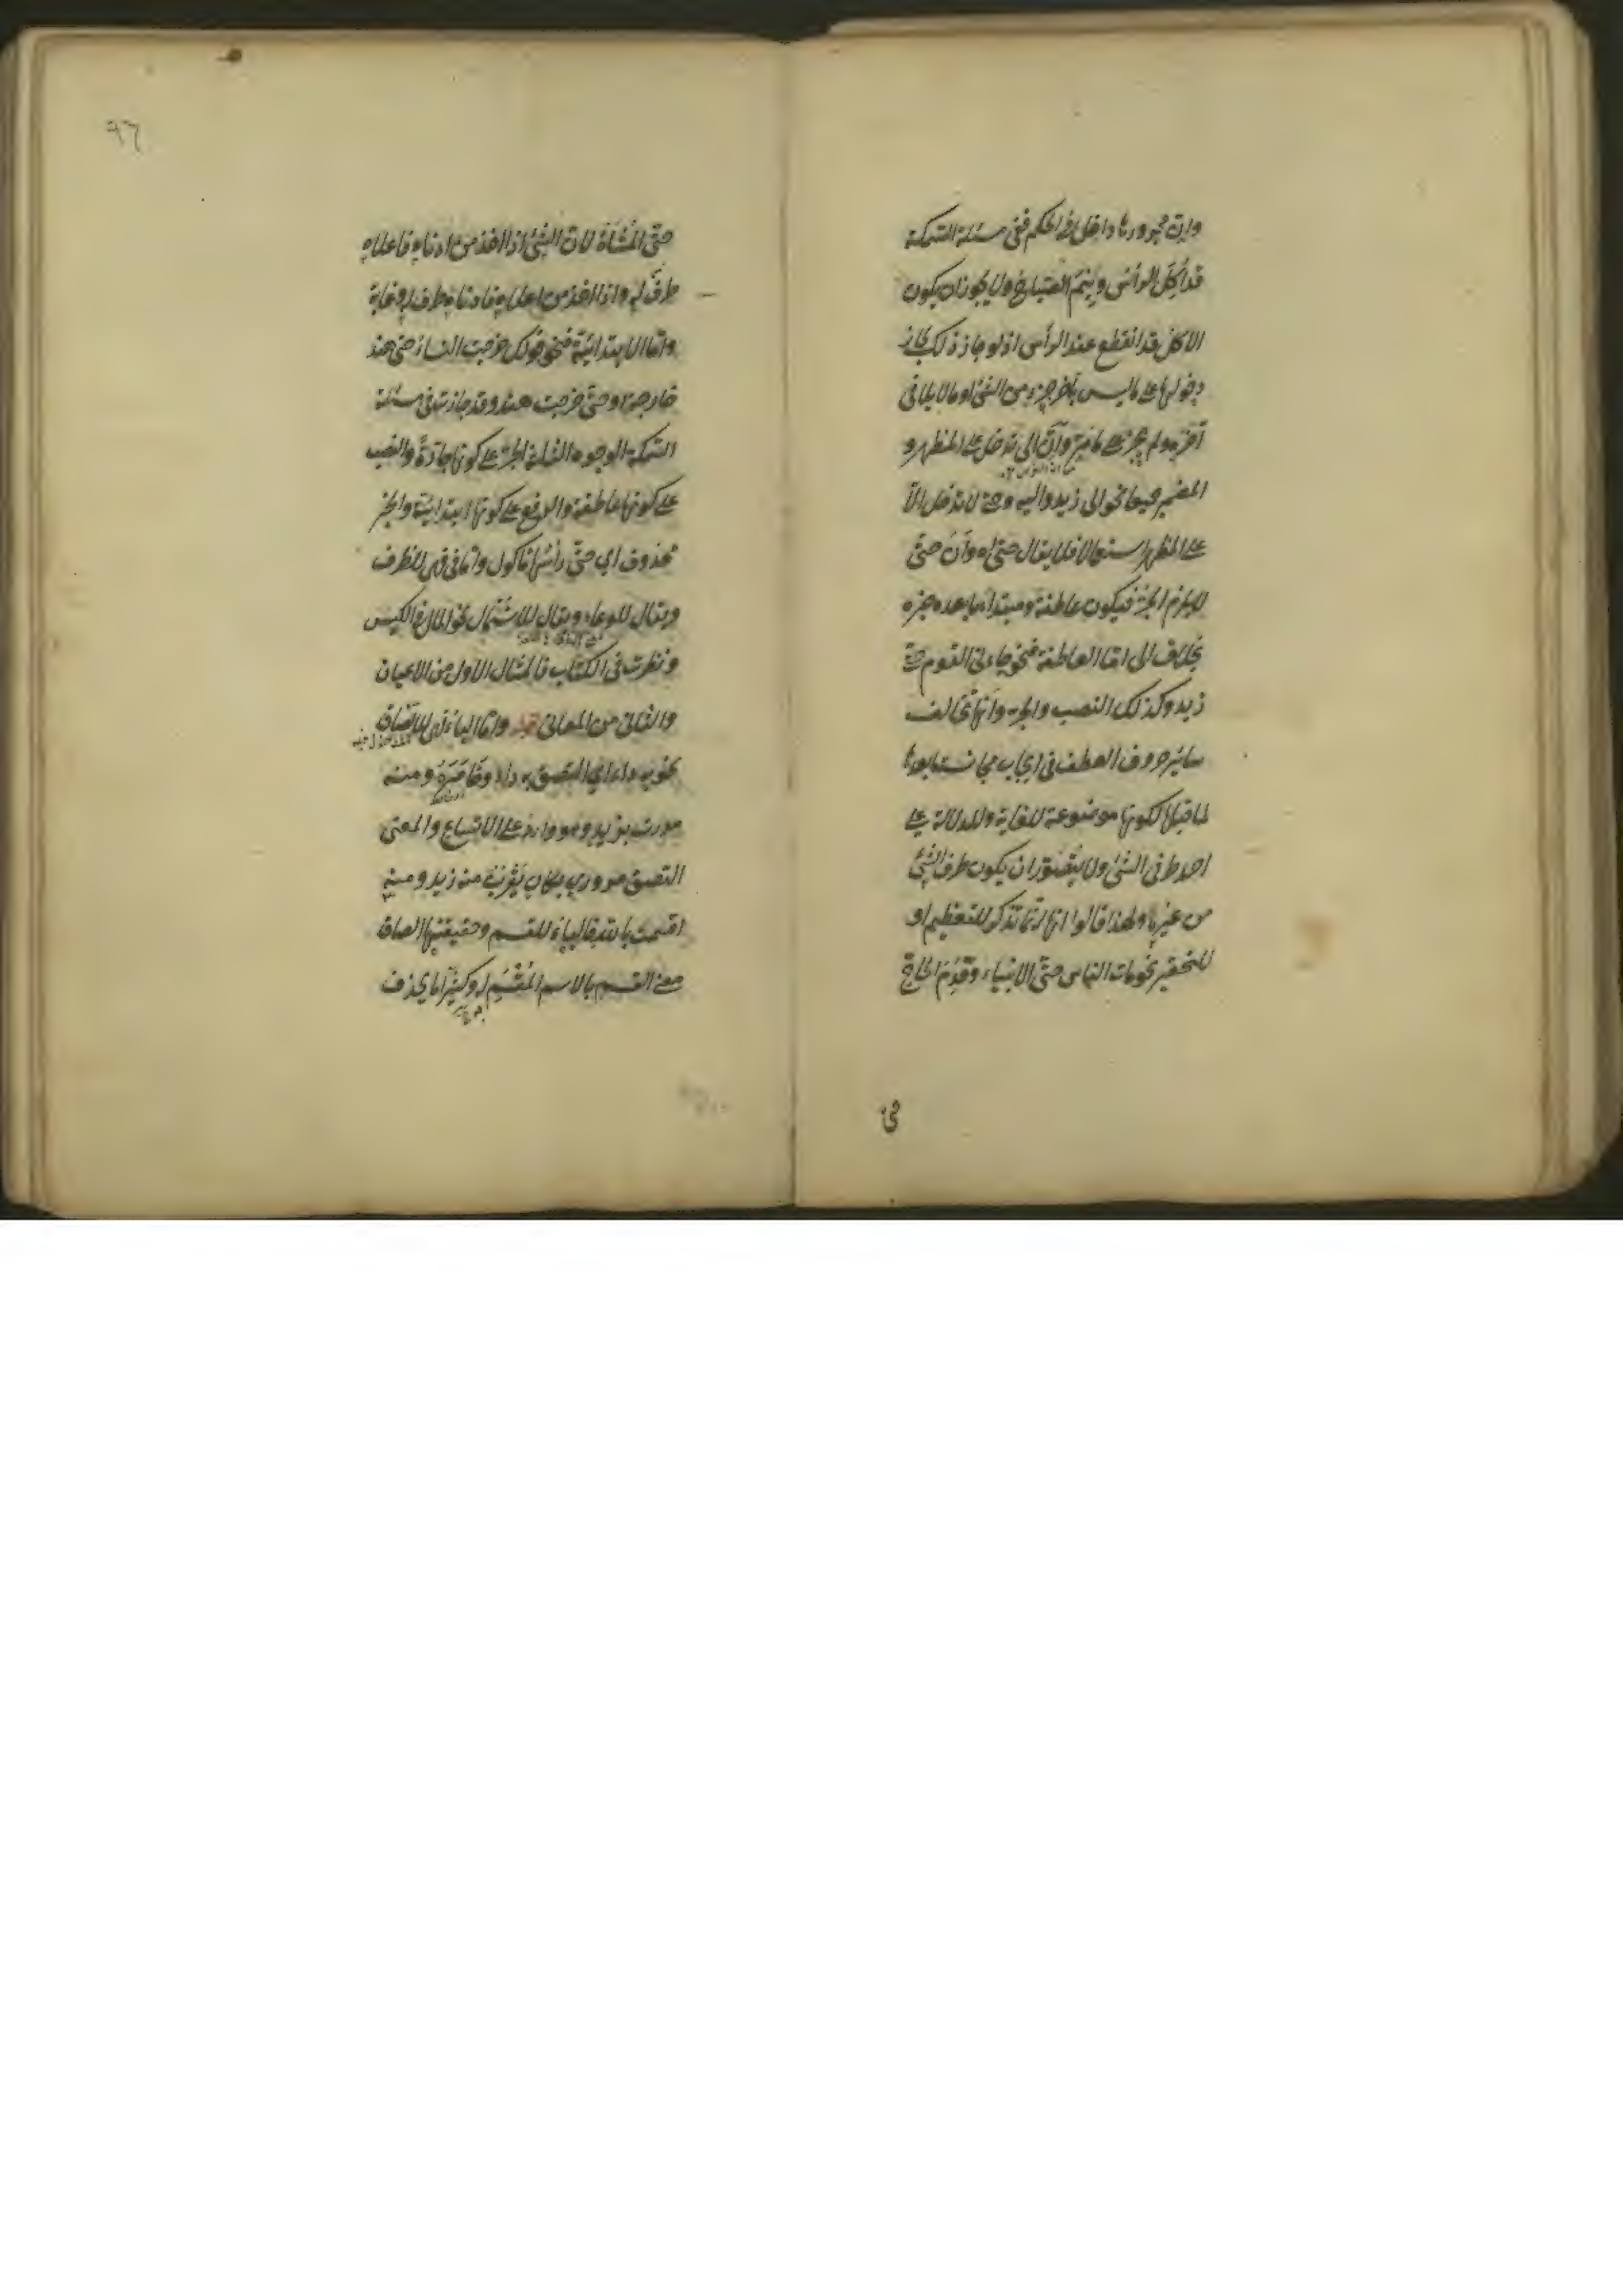 وان مجرورها داخل في الحكم ففي مسئلة السمكة
قد اكل الرأس ونيم الصباح ولا يجوز ان يكون
الاكل قد انقطع عند الرأس اذ لو جاز ذلك لجاز
دخولها على ما ليس بآخر جزء من الشئ او ما لا يلاقي
آخره ولم يجز على ما مر وان الى تدخل على المظهر و
المضمر جميعا نحو الى زيد واليه وحتى لا تدخل الا
على المظهر استعمالا فلا يقال حتاه وان حتى
لا يلزم الجر فيكون عاطفة ومبتدأ ما بعده خبره
بخلاف الى اما العاطفة فنحو جاءني القوم حتى
زيد وكذلك النصب والجر وانها تخالف
سائر حروف العطف في ايجاب مجانسة ما بعدها
لما قبلها لكونها موضوعة للغاية والدلالة على
احد طرفي الشئ ولا يتصور ان يكون طرف الشئ
من غيره ولهذا قالوا انها انما تذكر للتعظيم او
للتحقير نحو مات الناس حتى الانبياء وقدم الحاج
حتى
٩٦
حتى المشاة لان الشئ اذا اخذ من ادناه فاعلاه
طرف له واذا اخذ من اعلاه فادناه طرف له وغاية
واما الابتدائية فنحو قولك خرجت النساء حتى هند
خارجة او حتى خرجت هند وقد جازت في مسئلة
السمكة الوجوه الثلثة الجر على كونها جارة والنصب
على كونها عاطفة والرفع على كونها ابتدائية والخبر
محذوف اي حتى رأسها مأكول واما في فهي للظرف
ويقال للوعاء ويقال للاشتمال نحو المال في الكيس
ونظرت في الكتاب فالمثال الاول من الاعيان
والثاني من المعاني واما الباء فهي للالصاق
نحو به داء اي التصق به داء وخامره ومنه
مررت بزيد وهو وارد على الاتساع والمعنى
التصق مروري بمكان يقرب منه زيد ومنه
اقسمت بالله فالباء للقسم وحقيقتها الصاق
معنى القسم بالاسم المقسم به وكثيرا ما يحذف